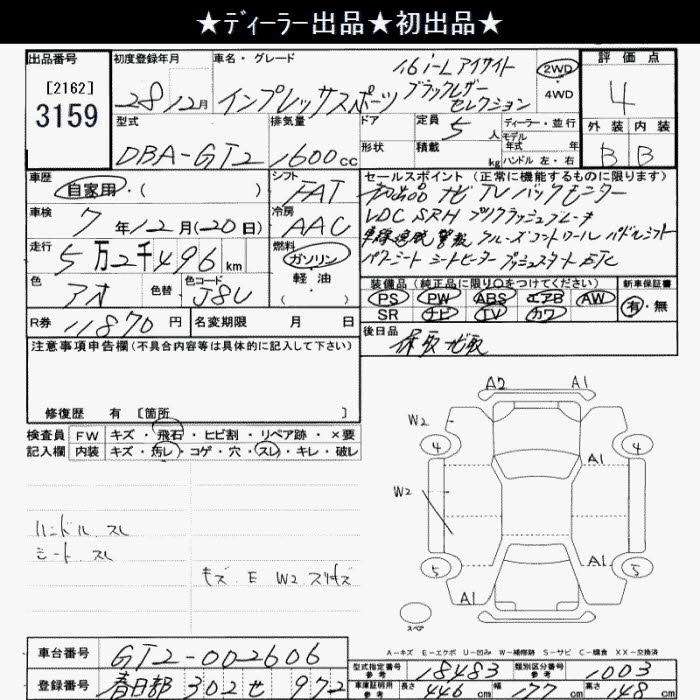 ★ディーラー出品★初出品★
出品番号 [2162] 3159
初度登録年月 28/12月
車名・グレード インプレッサスポーツ 1.6i-L アイサイト ブラックレザー セレクション
2WD 4WD
評価点 4
外装 内装
B B
型式 DBA-GT2
排気量 1600cc
ドア 形状
定員 5人
積載 kg
ディーラー・並行
モデル年式 年式
ハンドル 左・右
車歴 自家用・( )
シフト FAT
セールスポイント (正常に機能するものに限ります)
初出品 ナビ TV バックモニター
VDC SRH プリクラッシュブレーキ
車線逸脱 警報 クルーズコントロール パドルシフト
パワーシート シートヒーター プッシュスタート ETC
車検 7年12月(20日)
冷房 AAC
走行 5万2千496km
燃料 ガソリン 軽油 ( )
色 アオ 色替 色コード J8U
装備品 (純正品に限り○をつけてください)
PS PW ABS エアB AW
SR ナビ TV カワ
新車保証書 有・無
R券 11870円
名変期限 月 日
後日品 保取 ナビ取
注意事項申告欄 (不具合内容等は具体的に記入して下さい)
修復歴 有 [箇所 ]
検査員 記入欄
FW キズ・飛石・ヒビ割・リペア跡・×要
内装 キズ・汚レ・コゲ・穴・スレ・キレ・破レ
ハンドル スレ
シート スレ
キズ E W2 スリキズ
A2 A1
W2
4 4
A1
W2
A1
5 5
A1
スペア
A-キズ E-エクボ U-凹み W-補修跡 S-サビ C-腐食 XX-交換済
車台番号 GT2-002606
登録番号 春日部 302 せ 972
型式指定番号 参考 18483
類別区分番号 参考 003
車庫証明用 参考 長さ 446cm 幅 177cm 高さ 148cm